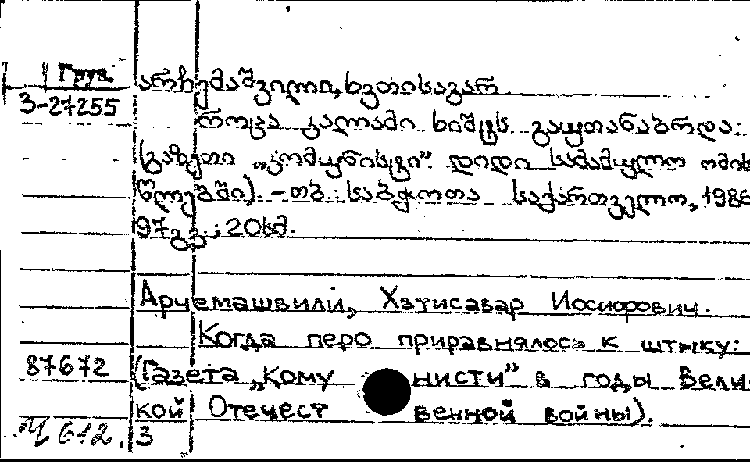 Груз.
არჩემაშვილი, ხვთისავარ
3-27255
როცა კალამი ხიშტს გაუთანაბრდა:
(გაზეთი „კომუნისტი". დიდი სამამულო ომის
წლებში). - თბ.: საბჭოთა საქართველო, 1986
97გვ.; 20სმ.
Арчемашвили, Хэтисавар Иосифович.
Когда перо приравнялось к штыку:
87672 (Газета „Кому нисти" в годы Вели
кой Отечест венной войны).
И 612. 3